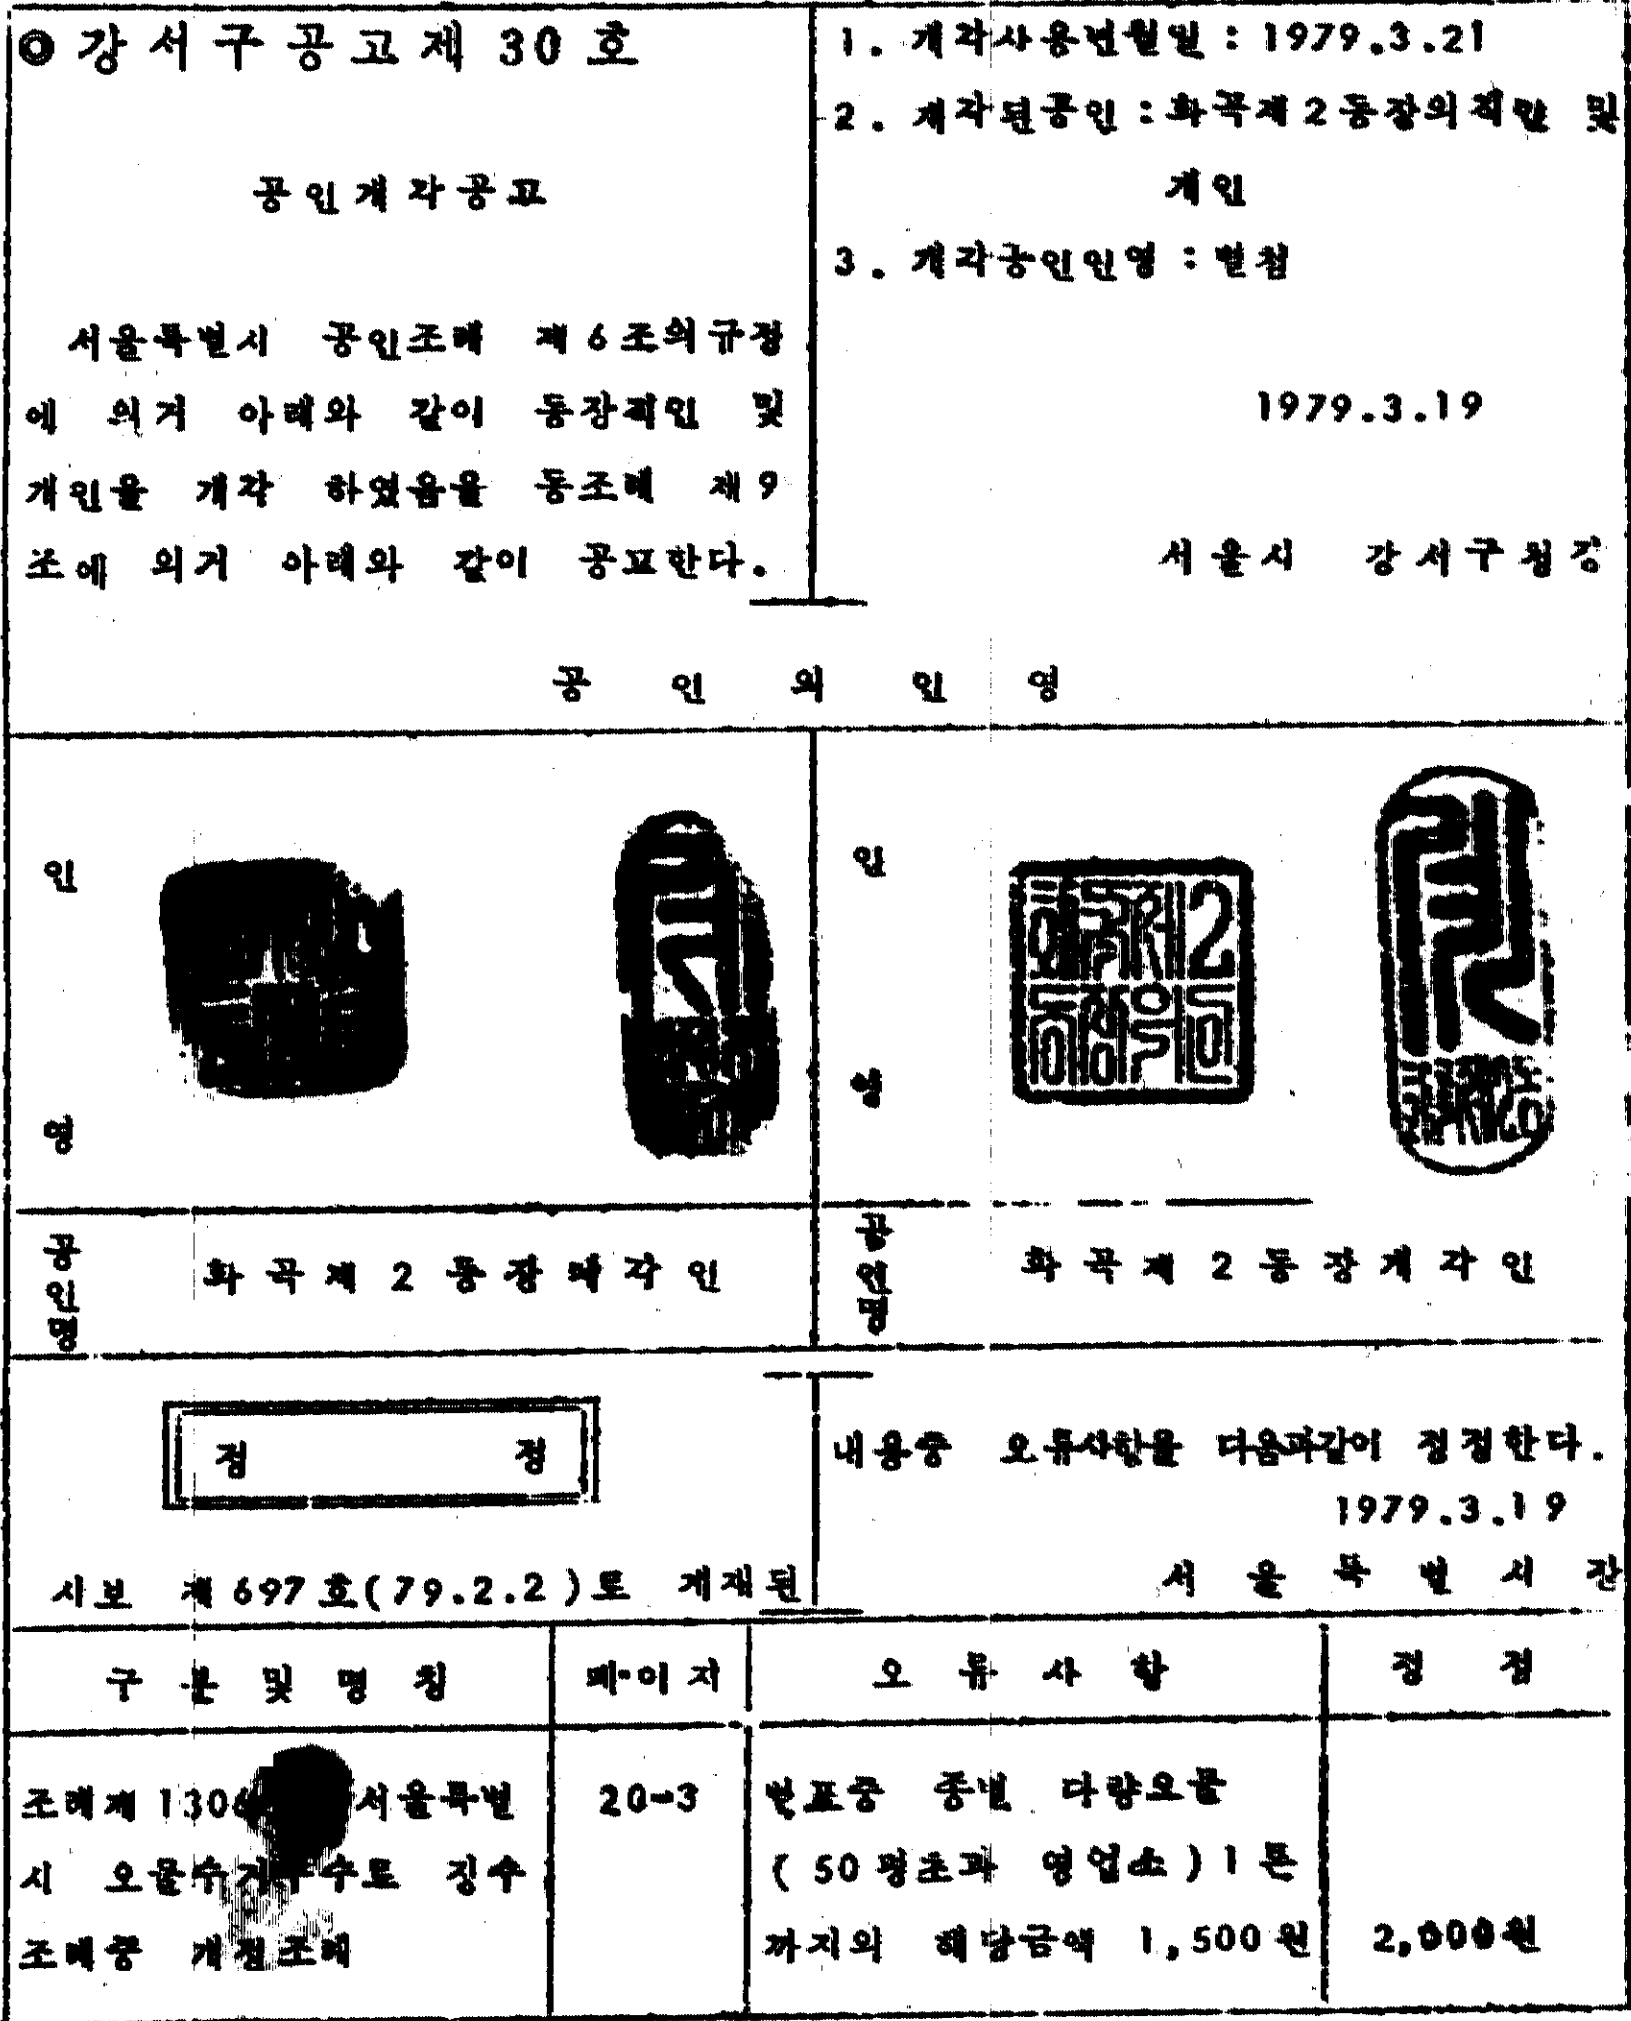 ◎ 강서구공고제 30 호
공인개각공고
서울특별시 공인조례 제 6 조의규정
에 의거 아래와 같이 동장직인 및
개인을 개각 하였음을 동조례 제 9
조에 의거 아래와 같이 공고한다.
1. 개각사용년월일 : 1979.3.21
2. 개각된공인 : 화곡제 2 동장의직인 및
개인
3. 개각공인인영 : 별첨
1979.3.19
서울시 강서구청장
공 인 의 인 영
인
영
인
영
화곡제2
동장의인
공인명
화곡제 2 동장폐각인
공인명
화곡제 2 동장개각인
정 정
시보 제 697 호(79.2.2)로 게재된
내용중 오류사항을 다음과같이 정정한다.
1979.3.19
서 울 특 별 시 장
구 분 및 명 칭 페이지 오 류 사 항 정 정
조례제 1306 서울특별
시 오물수거수수료 징수
조례중 개정조례
20-3
별표중 종별 다량오물
( 50 평초과 영업소 ) 1 톤
까지의 해당금액 1,500 원
2,000원